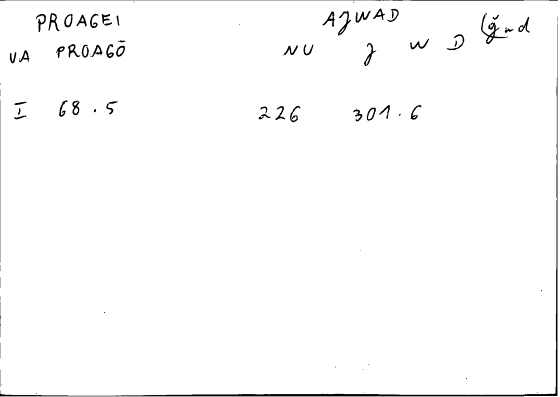 PROAGEI AJWAD (ǧwd
VA PROAGŌ NU J W D
I 68.5 226 301.6